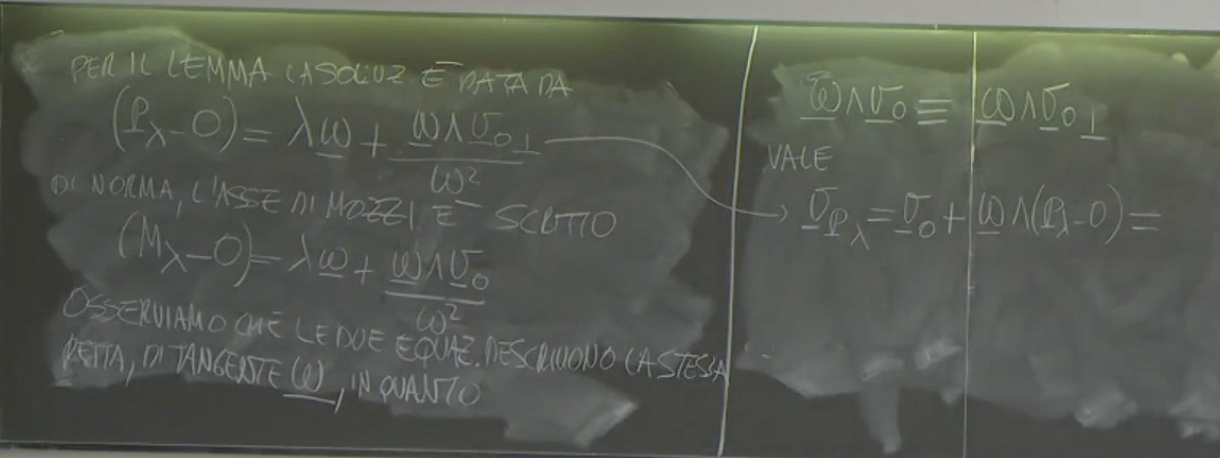 PER IL LEMMA LA SOLUZ È DATA DA
(P_λ-O) = λω + ω∧v_O⊥ / ω²
DI NORMA, L'ASSE DI MOZZI È SCRITTO
(M_λ-O) = λω + ω∧v_O / ω²
OSSERVIAMO CHE LE DUE EQUAZ. DESCRIVONO LA STESSA
RETTA, DI TANGENTE ω, IN QUANTO
ω∧v_O ≡ ω∧v_O⊥
VALE
v_P_λ = v_O + ω∧(P_λ-O) =